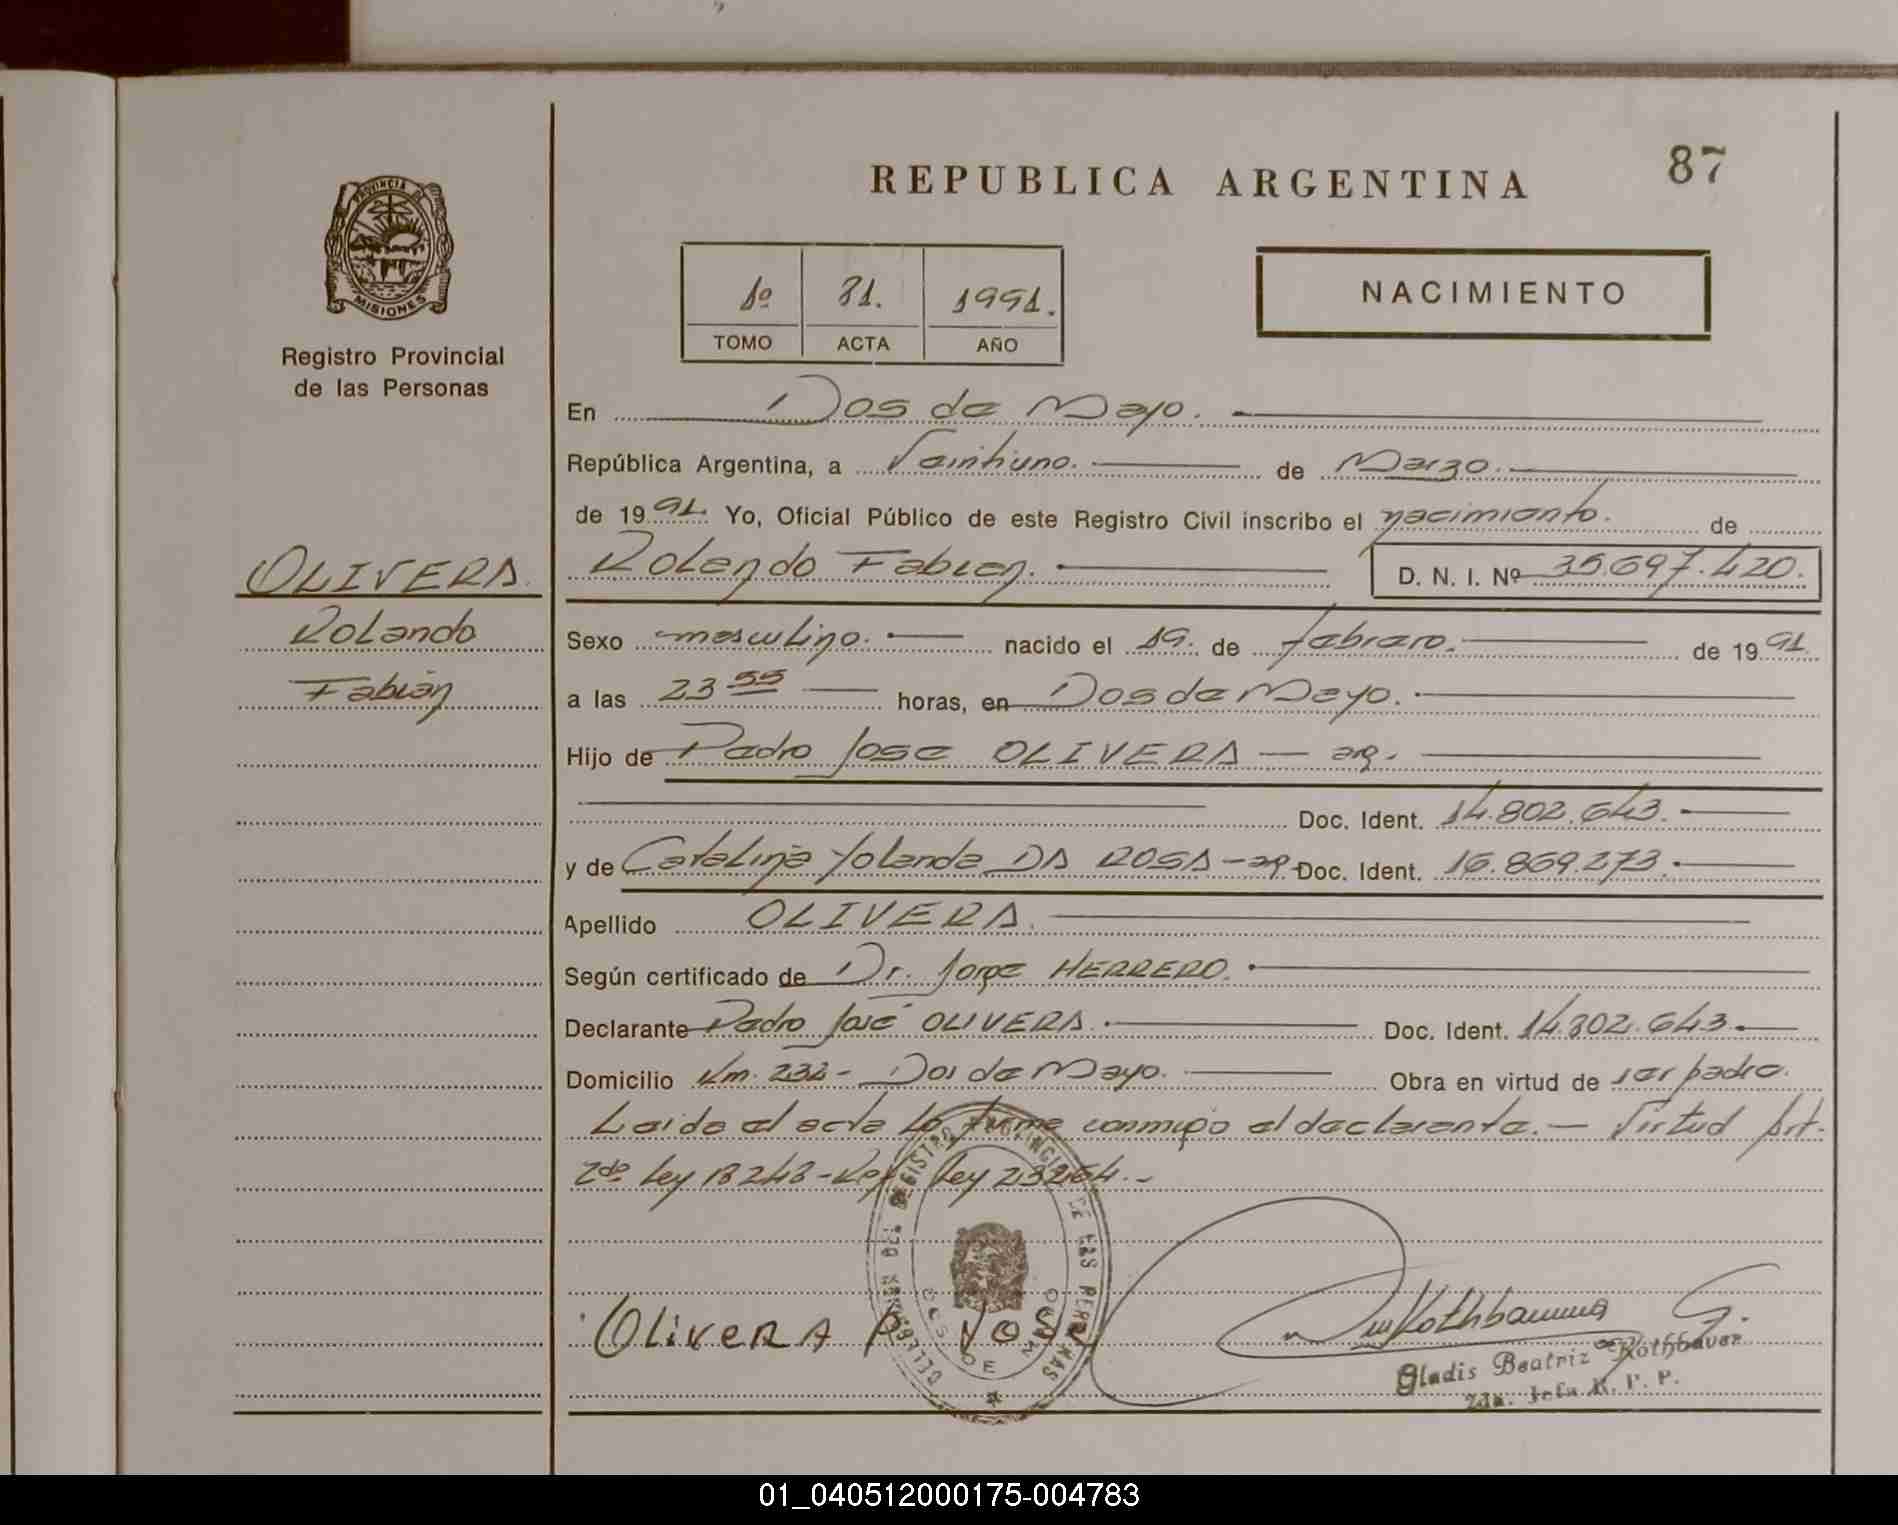 87
REPUBLICA ARGENTINA
PROVINCIA DE
MISIONES
Registro Provincial
de las Personas
1º 81. 1991.
TOMO ACTA AÑO
NACIMIENTO
En Dos de Mayo.
República Argentina, a Veintiuno. de Marzo.
de 1991. Yo, Oficial Público de este Registro Civil inscribo el nacimiento. de
OLIVERA
Rolando
Fabián
Rolando Fabian. D. N. I. Nº 35.697.420.
Sexo masculino. nacido el 19. de febrero. de 1991.
a las 23 55 horas, en Dos de Mayo.
Hijo de Pedro Jose OLIVERA — arg.
Doc. Ident. 14.802.643.
y de Catalina Yolanda DA ROSA - arg. Doc. Ident. 16.869.273.
Apellido OLIVERA.
Según certificado de Dr. Jorge HERRERO.
Declarante Pedro José OLIVERA. Doc. Ident. 14.802.643.
Domicilio Km. 232 - Dos de Mayo. Obra en virtud de ser padre.
Leida el acta la firma conmigo el declarante. — Virtud Art.
2do Ley 18248 - Ley 23264.-
DELEGACION DEL REGISTRO PROVINCIAL DE LAS PERSONAS
DOS DE MAYO
OLIVERA P JOSE
Gladis Beatriz de Rothbauer
2da. Jefa R. P. P.
01_040512000175-004783